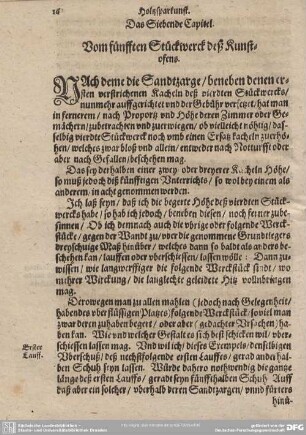 16
Holtzsparkunst.
Das Siebende Capitel.
Vom fünfften Stückwerck deß Kunst-
ofens.
NAch deme die Sandtzarge / beneben denen er-
sten verstrichenen Kacheln deß vierdten Stückwercks /
nunmehr auffgerichtet vnd der Gebühr versetzet / hat man
in fernerem / nach Proportz vnd Höhe deren Zimmer oder Ge-
mächern / zubetrachten vnd zuerwegen / ob vielleicht nöhtig / daß-
selbig vierdte Stückwerck noch vmb einen Ersatz Kacheln zuerhö-
hen / welches zwar bloß vnd allein / entweder nach Notturfft oder
aber nach Gefallen / beschehen mag.
Das sey derhalben einer zwey- oder dreyerer Kacheln Höhe /
so muß jedoch deß fünfften Vnterrichts / so wol bey einem als
anderem / in acht genommen werden.
Ich laß seyn / daß ich die begerte Höhe deß vierdten Stück-
wercks habe / so hab ich jedoch / beneben diesen / noch ferner zube-
sinnen; Ob ich demnach auch die vbrige oder folgende Werck-
stücke / gegen der Wandt zu / vber die genommene Grundtlegers
dreyschuige Maß herüber / welches dann so baldt als anders be-
schehen kan / lauffen oder vberschiessen / lassen wölle: Dann zu-
wissen / wie langwerffiger die folgende Werckstück sindt / wo
mehrer Wirckung / die langlechte geleidete Hitz vollnbringen
mag.
Derowegen man zu allen mahlen (jedoch nach Gelegenheit /
habendes vberflüssigen Platzes) folgende Werckstück / soviel man
zwar deren zuhaben begeret / oder aber (gedachter Vrsachen) ha-
ben kan. Wie vnd welcher Gestalt es sich best schicken wil / vber-
schiessen lassen mag.
erstes Lauffes / gerad anderhal-
ben Schuh seyn lassen. Würde dahero nothwendig die gantze
länge deß ersten Lauffs / gerade seyn fünffthalben Schuh. Auff
daß aber ein solcher / vberhalb deren Sandtzargen / vnnd fürters
hinü-
Erster
Lauff.